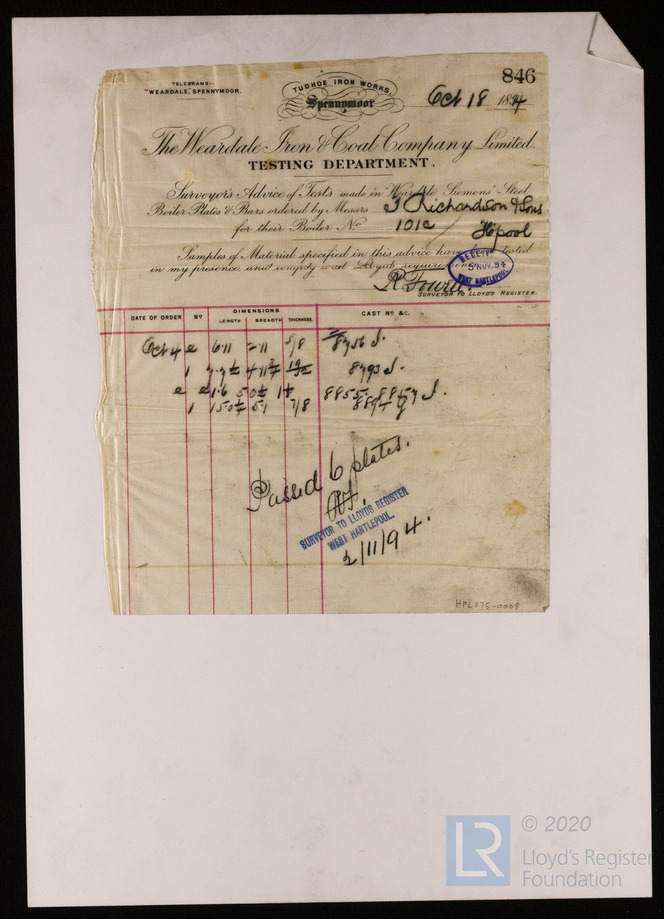 846
TELEGRAMS:-
"WEARDALE," SPENNYMOOR.
TUDHOE IRON WORKS,
Spennymoor
Oct 18 1894
The Weardale Iron & Coal Company Limited.
TESTING DEPARTMENT.
Surveyor's Advice of Tests made in "Weardale Siemens" Steel
Boiler Plates & Bars ordered by Messrs T Richardson & Sons
for their Boiler No 1012 H'pool
Samples of Material specified in this advice have tested
in my presence and comply with Lloyds requirements
5 NOV. 94
WEST HARTLEPOOL
SURVEYOR TO LLOYD'S REGISTER.
DATE OF ORDER No DIMENSIONS CAST Nos &c.
LENGTH BREADTH THICKNESS.
Oct 4 2 6·11 2·11 5/8 8756
1 19/32 8793
2 1·6
1 5·1 7/8
Passed 6 plates.
SURVEYOR TO LLOYDS REGISTER
WEST HARTLEPOOL.
2/11/94.
HPL375-0008
© 2020
LR
Lloyd's Register
Foundation